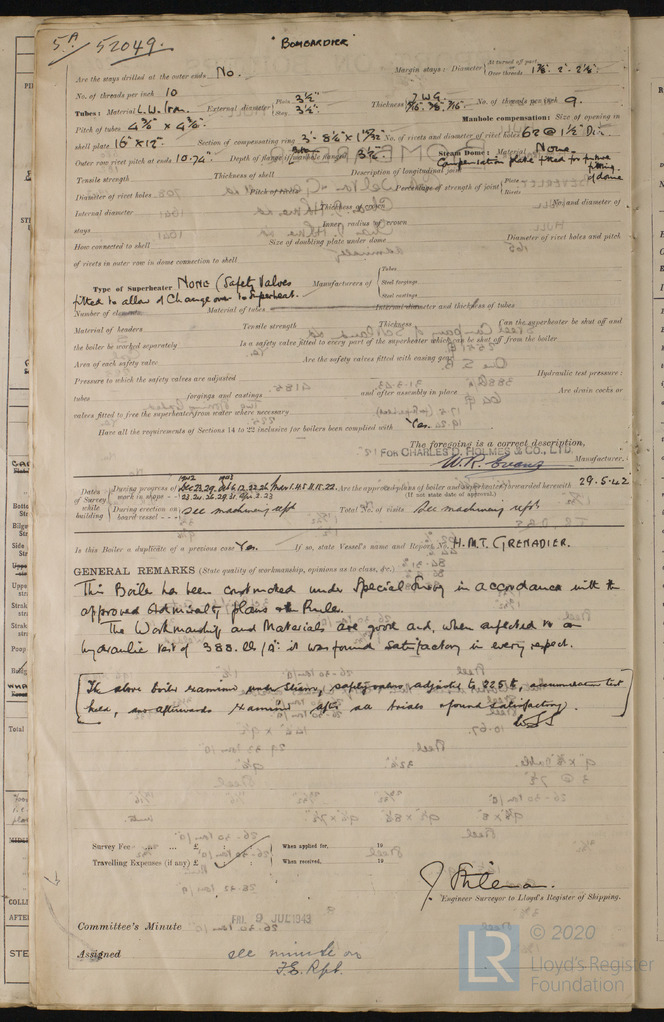 5A/52049.
"BOMBARDIER"
Are the stays drilled at the outer ends No. Margin stays: Diameter { At turned off part, or Over threads 1⅞" 2" 2⅛".
No. of threads per inch 10
Tubes: Material L.W. Iron. External diameter { Plain 3½" Stay 3½" Thickness { 7 W.G. 5/16" 3/8" 7/16" No. of threads per inch 9.
Pitch of tubes 4⅝" x 4⅝". Manhole compensation: Size of opening in
shell plate 16" x 12" Section of compensating ring 3'- 8½" x 1 11/32" No. of rivets and diameter of rivet holes 62 @ 1½" Di.
Outer row rivet pitch at ends 10.74" Depth of flange if manhole flanged 3¾" Steam Dome: Material None.
Compensation plate fitted for future fitting of dome
Tensile strength Thickness of shell Description of longitudinal joint
Diameter of rivet holes Pitch of rivets Percentage of strength of joint { Plate Rivets
Internal diameter Thickness of crown No. and diameter of
stays Inner radius of crown
How connected to shell Size of doubling plate under dome Diameter of rivet holes and pitch
of rivets in outer row in dome connection to shell
Type of Superheater NONE (Safety Valves Manufacturers of { Tubes Steel forgings Steel castings
fitted to allow of Change over to Superheat.
Number of elements Material of tubes Internal diameter and thickness of tubes
Material of headers Tensile strength Thickness Can the superheater be shut off and
the boiler be worked separately Is a safety valve fitted to every part of the superheater which can be shut off from the boiler
Area of each safety valve Are the safety valves fitted with easing gear
Pressure to which the safety valves are adjusted Hydraulic test pressure:
tubes forgings and castings and after assembly in place Are drain cocks or
valves fitted to free the superheater from water where necessary
Have all the requirements of Sections 14 to 22 inclusive for boilers been complied with Yes.
The foregoing is a correct description,
FOR CHARLES D. HOLMES & CO., LTD.
W.R. Evans Manufacturer.
Dates of Survey while building { During progress of work in shops - - 1942 1943 Are the approved plans of boiler and superheater forwarded herewith 29.5.42
(If not state date of approval.)
During erection on board vessel - - - See machinery rept Total No. of visits See machinery rept
Is this Boiler a duplicate of a previous case Yes. If so, state Vessel's name and Report No. H.M.T. GRENADIER.
GENERAL REMARKS (State quality of workmanship, opinions as to class, &c.)
This Boiler has been constructed under Special Survey in accordance with the
approved Admiralty plans & the Rules.
The Workmanship and Materials are good and, when subjected to an
hydraulic test of 388 lb/□" it was found satisfactory in every respect.
[The above boiler examined under steam, safety valves adjusted to 225 lb, accumulation test
held, and afterwards examined after sea trials & found satisfactory].
Survey Fee ... ... £ : : When applied for, 19
Travelling Expenses (if any) £ : : When received, 19
Engineer Surveyor to Lloyd's Register of Shipping.
Committee's Minute FRI. 9 JUL 1943
Assigned see minute on
F.E. Rpt.
LR
© 2020
Lloyd's Register
Foundation